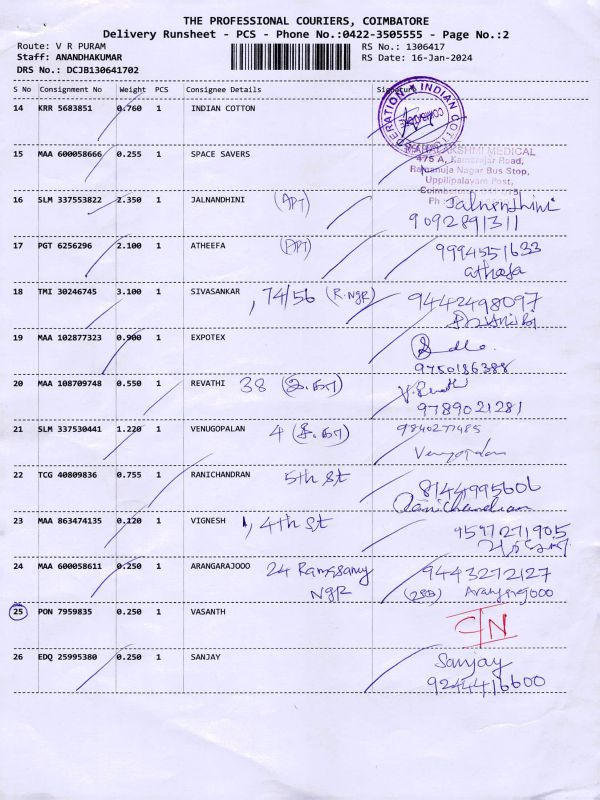 THE PROFESSIONAL COURIERS, COIMBATORE
Delivery Runsheet - PCS - Phone No.:0422-3505555 - Page No.:2
Route: V R PURAM RS No.: 1306417
Staff: ANANDHAKUMAR RS Date: 16-Jan-2024
DRS No.: DCJB130641702
S No Consignment No Weight PCS Consignee Details Signature
14 KRR 5683851 0.760 1 INDIAN COTTON
15 MAA 600058666 0.255 1 SPACE SAVERS
MEDICAL
475 A, Kamarajar Road,
Ramanuja Nagar Bus Stop,
Uppilipalayam Post,
Ph
16 SLM 337553822 2.350 1 JALNANDHINI (APT) Jalnandhini
9092891311
17 PGT 6256296 2.100 1 ATHEEFA (APT) 9994551633
athefa
18 TMI 30246745 3.100 1 SIVASANKAR , 74/56 (R.NGR) 9442498097
19 MAA 102877323 0.900 1 EXPOTEX
9750186388
20 MAA 108709748 0.550 1 REVATHI 38
9789021281
21 SLM 337530441 1.220 1 VENUGOPALAN 4 9840277485
Venugopalan
22 TCG 40809836 0.755 1 RANICHANDRAN 5th St 8144995606
Ranichandran
23 MAA 863474135 0.120 1 VIGNESH 1, 4th St 9597271905
24 MAA 600058611 0.250 1 ARANGARAJOOO 24 Ramasamy 9443272127
NgR
25 PON 7959835 0.250 1 VASANTH C/N
26 EDQ 25995380 0.250 1 SANJAY Sanjay
9244416600